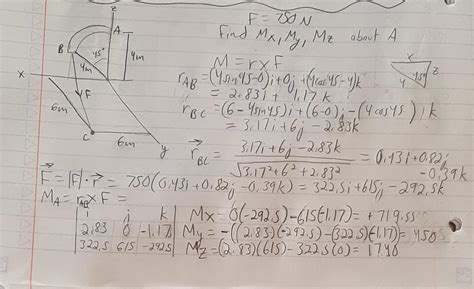 F = 750 N
Find Mx, My, Mz about A
z
A
B
45°
4m
4m
x
F
6m
C
6m
y
M = r x F
r_AB = (4sin45-0)i + 0j + (4cos45-4)k
= 2.83i + 1.17k
x
z
4
45°
r_BC = (6-4sin45)i + (6-0)j - (4cos45)k
= 3.17i + 6j - 2.83k
r_BC = 3.17i + 6j - 2.83k / √3.17² + 6² + 2.83² = 0.43i + 0.82j - 0.39k
F = |F|·r = 750(0.43i + 0.82j - 0.39k) = 322.5i + 615j - 292.5k
M_A = r_AB x F =
i j k
2.83 0 -1.17
322.5 615 -292.5
Mx = 0(-292.5) - 615(-1.17) = +719.55
My = -((2.83)(-292.5) - (322.5)(-1.17)) = 450
Mz = (2.83)(615) - 322.5(0) = 1740